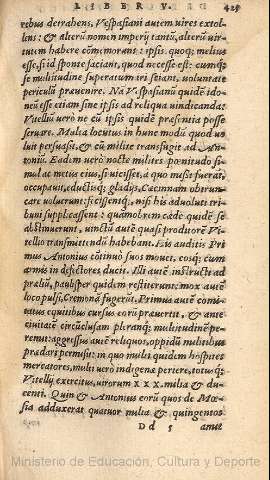 LIBER V. 425
rebus detrahens, Vespasiani autem uires extol
lens: & alterū nomen imperij tantū, alterū uir
tutem habere cōmemorans: ipsis quoq; melius
esse, si id sponte faciant, quod necesse est: cumq́;
se multitudine superatum iri sciant, uoluntate
periculū præuenire. Nā Vespasianū quidē ido-
neū esse etiam sine ipsis ad reliqua uindicanda:
Vitelliū uerò ne cū ipsis quidē præsentia posse
seruare. Multa locutus in hunc modū quod uo
luit persuasit, & cū milite transfugit ad Anto-
niū. Eadem uerò nocte milites pœnitudo si-
mul ac metus eius, si uicisset, à quo missi fuerāt,
occupauit, ductisq́; gladijs, Cæcinnam obtrun-
care uoluerunt: fecissentq́;, nisi his aduoluti tri
buni supplicassent: quamobrem cæde quidē se
abstinuerunt, uinctū autē quasi proditorē Vi-
tellio transmittendū habebant. His auditis Pri
mus Antonius cōtinuò suos mouet, eosq́; cum
armis in defectores ducit. Illi autē instructi ad
prælium, paulisper quidem restiterunt: mox autē
loco pulsi, Cremonā fugerūt. Primus autē comi
tatus equitibus cursus eorū præuertit, & ante
ciuitatē circūclusam pleranq́; multitudinē pe-
remit: aggressus autē reliquos, oppidū militibus
prædari permisit: in quo multi quidem hospites
mercatores, multi uerò indigenæ periere, totusq́;
Vitellij exercitus, uirorum xxx. milia & du-
centi. Quin & Antonius eorū quos de Mœ-
sia adduxerat quatuor milia & quingentos
Dd 5 amit
Ministerio de Educación, Cultura y Deporte